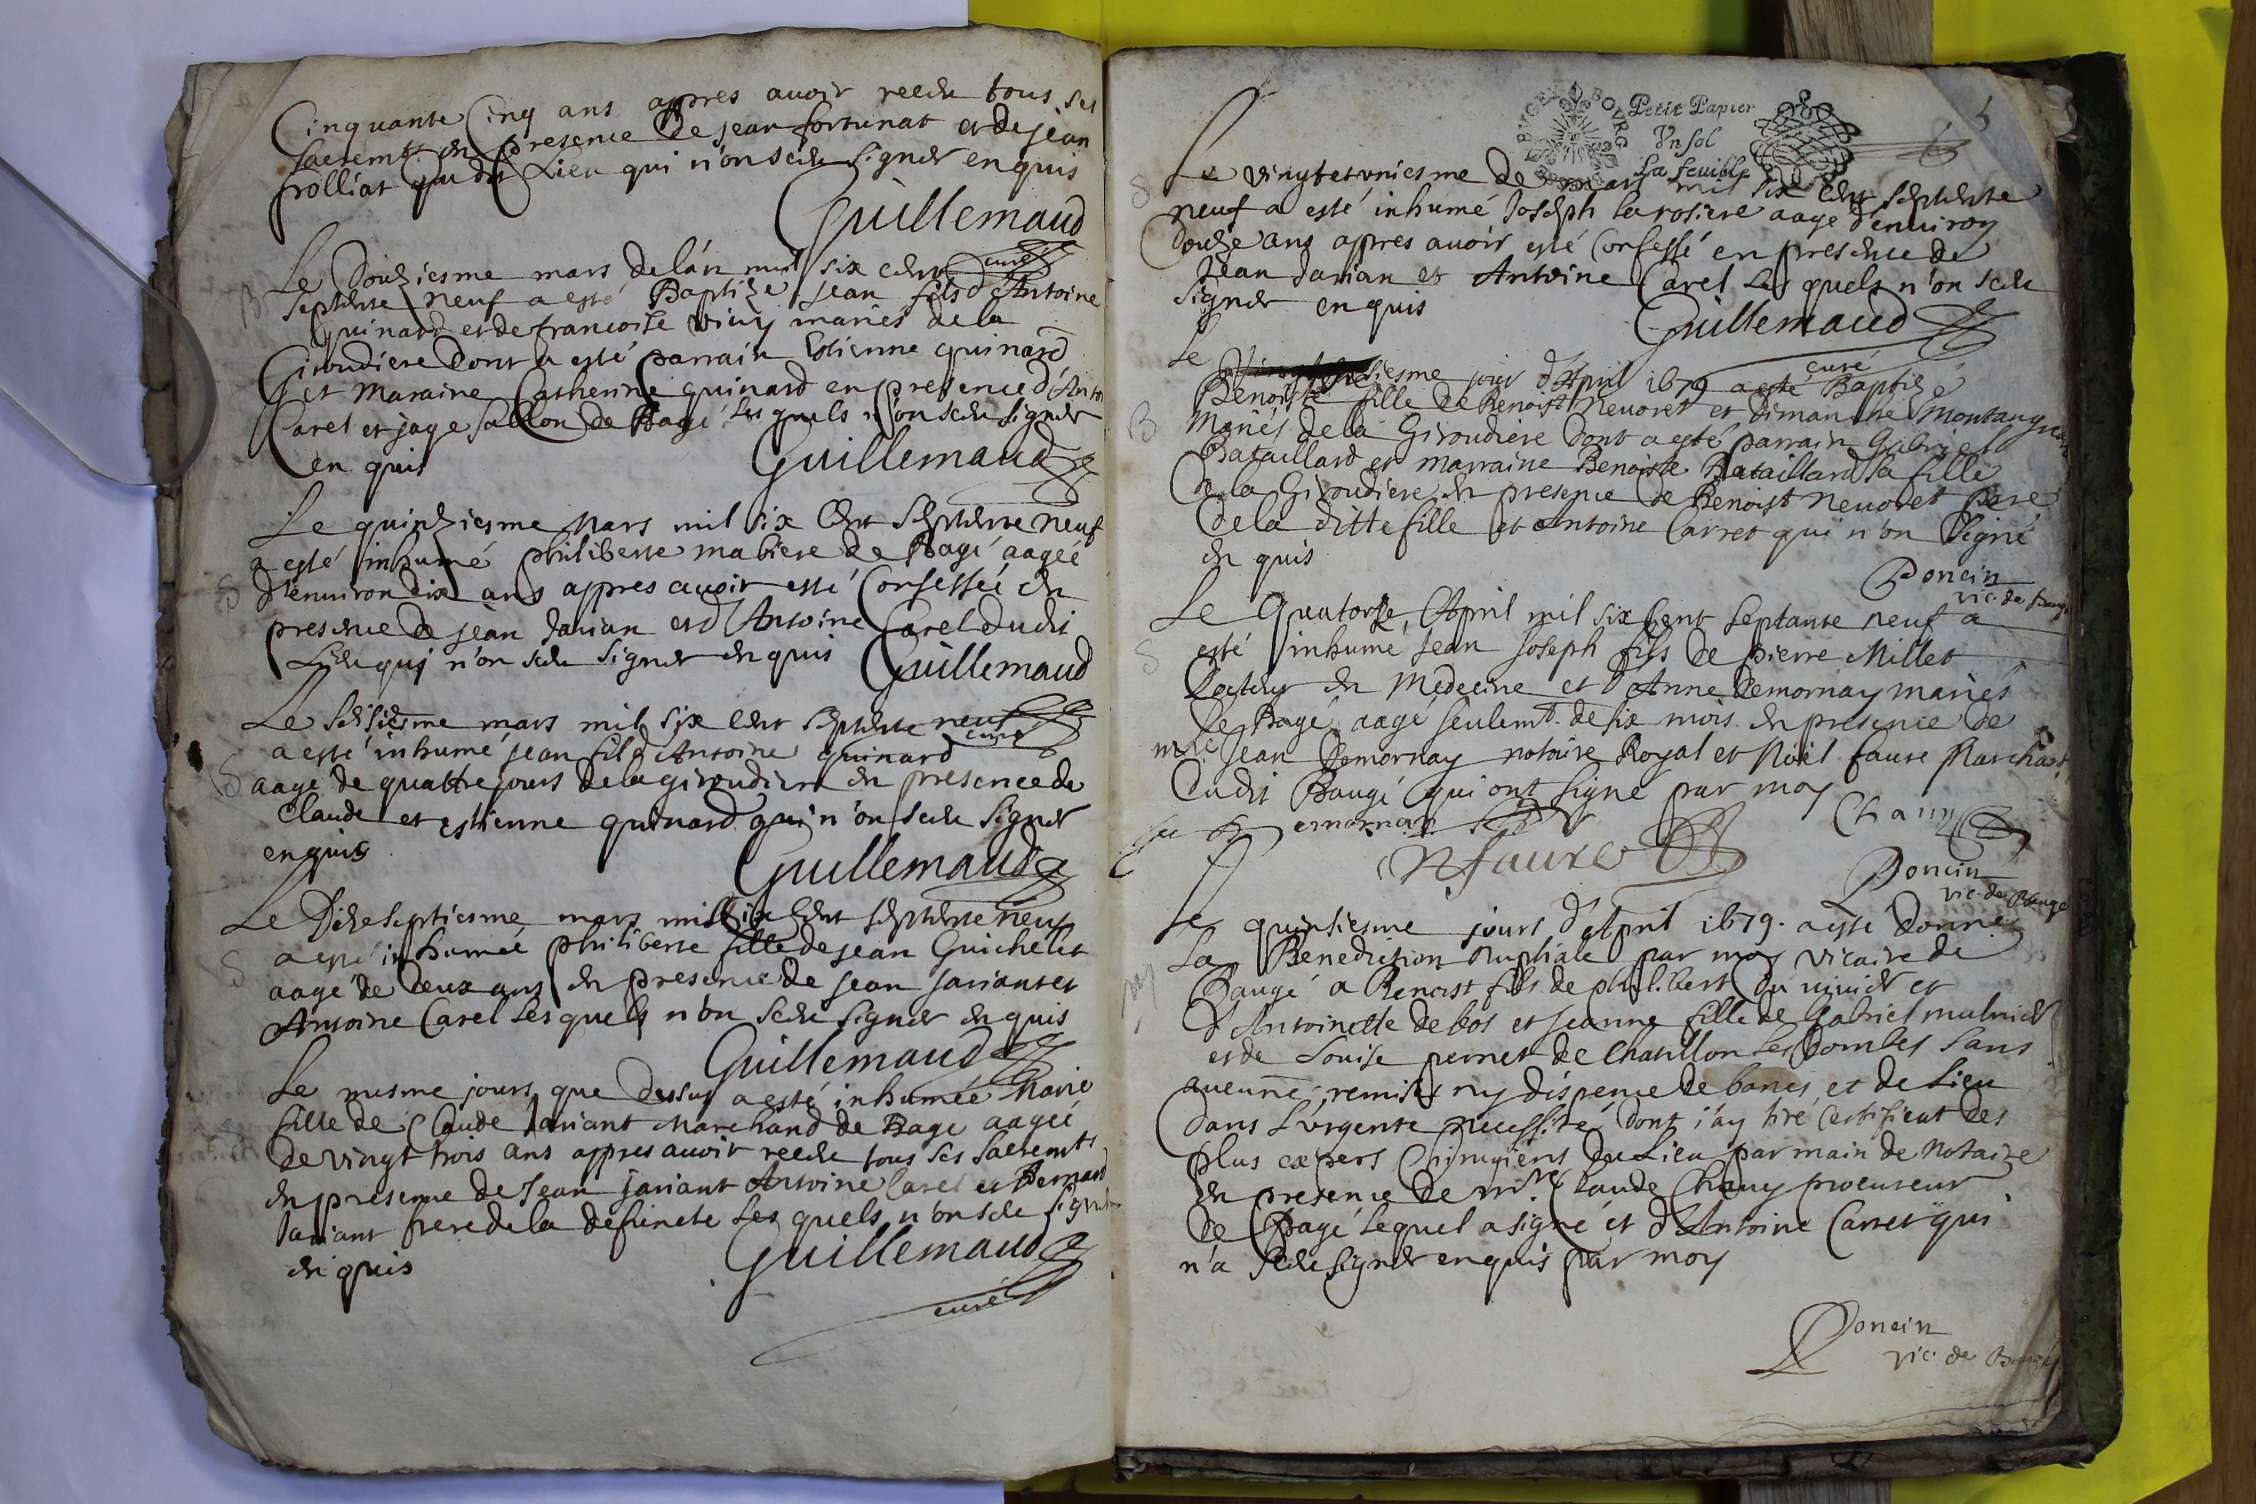 Cinquante Cinq ans appres auoir receu tous ses
sacremts en presence de jean fortunat et de jean
frolliat du dit Lieu qui n'on sceu signer enquis
Guillemaud
curé
B
Le douziesme mars de l'an mil six cent
septente neuf a esté Baptizé jean fils d'Antoine
Guinard et de francoise mariés de la
Giroudiere dont a esté parrain Estienne guinard
et Maraine Catherine guinard en presence d'Anto
Carel et jaqe sallon de Bagé les quels n'on sceu signer
en quis
Guillemaud
Le quinziesme Mars mil six Cent septente neuf
a esté inhumé philiberte mabiere de Bagé aageé
S
d'enuiron dix ans appres auoir esté Confessée en
presence de jean Jarian et d'Antoine Carel dudit
Lieu quj n'on sceu signer en quis
Guillemaud
curé
Le seisiesme mars mil six cent septente neuf
a esté inhumé jean fils d'Antoine guinard
S
aage de quattre jours de la giroudiere en presence de
Claude et estienne guinard qui n'on sceu signer
enquis
Guillemaud
Le Dixeseptiesme mars mil six Cent septente neuf
S
a esté inhumeé philiberte fille de jean Guichelet
aagé de deux ans en presence de jean jariant et
Antoine Carel Les quels n'on sceu signer en quis
Guillemaud
Le mesme jours que dessus a esté inhumée Marie
fille de Claude Jariant Marchand de Bage aageé
de vingt trois ans appres auoir receu tous ses sacremts
en presence de Jean jariant Antoine Carel et Bernard
Jariant frere de la defuncte Les quels n'on sceu signer
en quis
Guillemaud
curé
BVGEY BOVRG
Petit Papier
Vn sol
La feuille
5
S
Le vingtetvniesme de mars mil six cent septente
neuf a esté inhumé Joseph Larosiere aage d'enuiron
douze ans appres auoir esté Confessé en presence de
Jean Jarian et Antoine Carel Les quels n'on sceu
signer enquis
Guillemaud
curé
Le jour d'Apuril 1679 a esté Baptizé
Benoiste fille de Benoist Neuoret et dimanche
B
Mariés de la Giroudiere dont a esté parrain Gabriel
Bataillard et marraine Benoiste Bataillard sa fille
de la Giroudiere en presence de Benoist Neuoret pere
de la ditte fille et Antoine Carret qui n'on signé
en quis
Poncin
vic. de Baugé
Le quatorze April mil six cent septante neuf a
S
esté inhumé Jean Joseph fils de pierre Millet
Docteur en Medecine et d'Anne Demornay mariés
de Bagé aagé seulemt. de six mois en presence de
mre Jean Demornay notaire Royal et Noël faure Marchant
dudit Baugé qui ont signé par moy
Demornay
Chauy
N faure
Poncin
vic. de Baugé
Le quinsiesme jours d'April 1679. a esté donnée
La Benediction Nuptiale par moy vicaire de
Baugé a Benoist fils de philibert Du viuier et
d'Antoinette debos et Jeanne fille de Gabriel mulnier
et de Louise pernet de Chatillon Les Dombes sans
aucune remise ny dispence de bancs, et de Lieu
dans L'vrgente necessité dont j'ay tiré Certificat des
plus expers Chirugiens du Lieu par main de Notaire
en presence de mre Claude Chauy procureur
de Bagé lequel a signé et d'Antoine Carret qui
n'a sceu signer enquis par moy
Poncin
vic. de Baugé